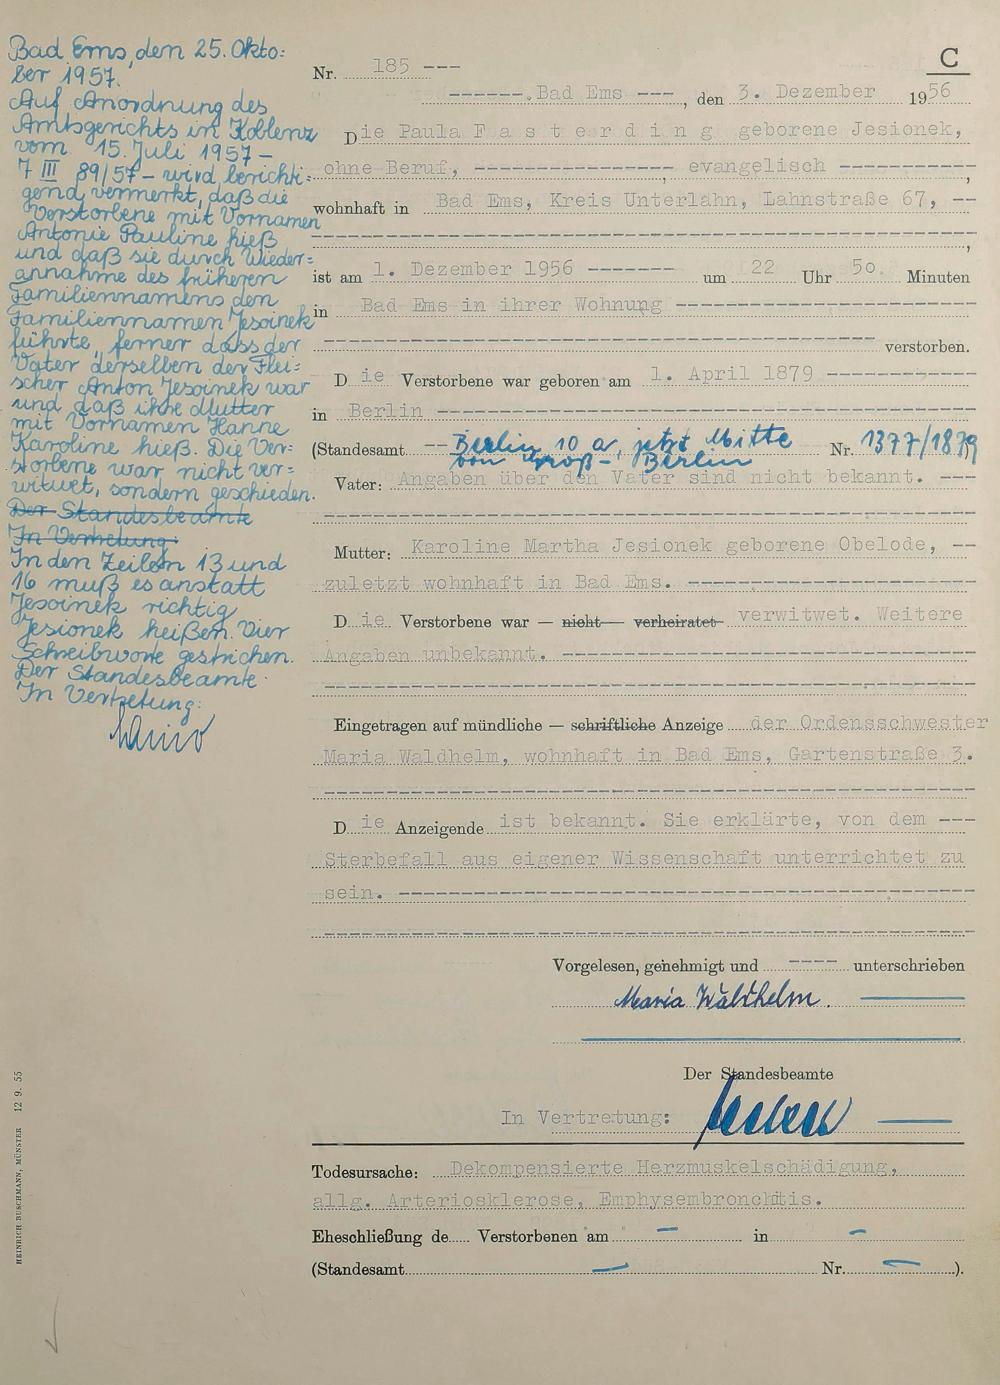 Bad Ems, den 25. Okto:
ber 1957.
Auf Anordnung des
Amtsgerichts in Koblenz
vom 15. Juli 1957 –
7 III 89/57 – wird berichti:
gend vermerkt, daß die
Verstorbene mit Vornamen
Antonie Pauline hieß
und daß sie durch Wieder:
annahme des früheren
Familiennamens den
Familiennamen Jesoinek
führte, ferner dass der
Vater derselben der Flei:
scher Anton Jesoinek war
und daß ihre Mutter
mit Vornamen Hanne
Karoline hieß. Die Ver:
storbene war nicht ver:
witwet, sondern geschieden.
Der Standesbeamte
In Vertretung:
In den Zeilen 13 und
16 muß es anstatt
Jesoinek richtig
Jesionek heißen. Vier
Schreibworte gestrichen.
Der Standesbeamte
In Vertretung:
C
Nr. 185 ---
------.Bad Ems ---, den 3. Dezember 1956
Die Paula Fasterding geborene Jesionek,
ohne Beruf, ----------------, evangelisch -----------,
wohnhaft in Bad Ems, Kreis Unterlahn, Lahnstraße 67, --
ist am 1. Dezember 1956 ------- um 22 Uhr 50. Minuten
in Bad Ems in ihrer Wohnung ------------------------
verstorben.
Die Verstorbene war geboren am 1. April 1879 ------------
in Berlin --------------------------------------------
(Standesamt -- Berlin 10 a, jetzt Mitte Nr. 1377/1879
von Groß-Berlin
Vater: Angaben über den Vater sind nicht bekannt. ---
Mutter: Karoline Martha Jesionek geborene Obelode, --
zuletzt wohnhaft in Bad Ems. -----------------------
Die Verstorbene war — nicht — verheiratet verwitwet. Weitere
Angaben unbekannt. ----------------------------------
Eingetragen auf mündliche — schriftliche Anzeige der Ordensschwester
Maria Waldhelm, wohnhaft in Bad Ems, Gartenstraße 3.
Die Anzeigende ist bekannt. Sie erklärte, von dem ---
Sterbefall aus eigener Wissenschaft unterrichtet zu
sein. ----------------------------------------------
Vorgelesen, genehmigt und ---- unterschrieben
Maria Waldhelm.
Der Standesbeamte
In Vertretung:
Todesursache: Dekompensierte Herzmuskelschädigung,
allg. Arteriosklerose, Emphysembronchitis.
Eheschließung de..... Verstorbenen am — in —
(Standesamt — Nr. —).
HEINRICH BUSCHMANN, MÜNSTER 12 9. 55